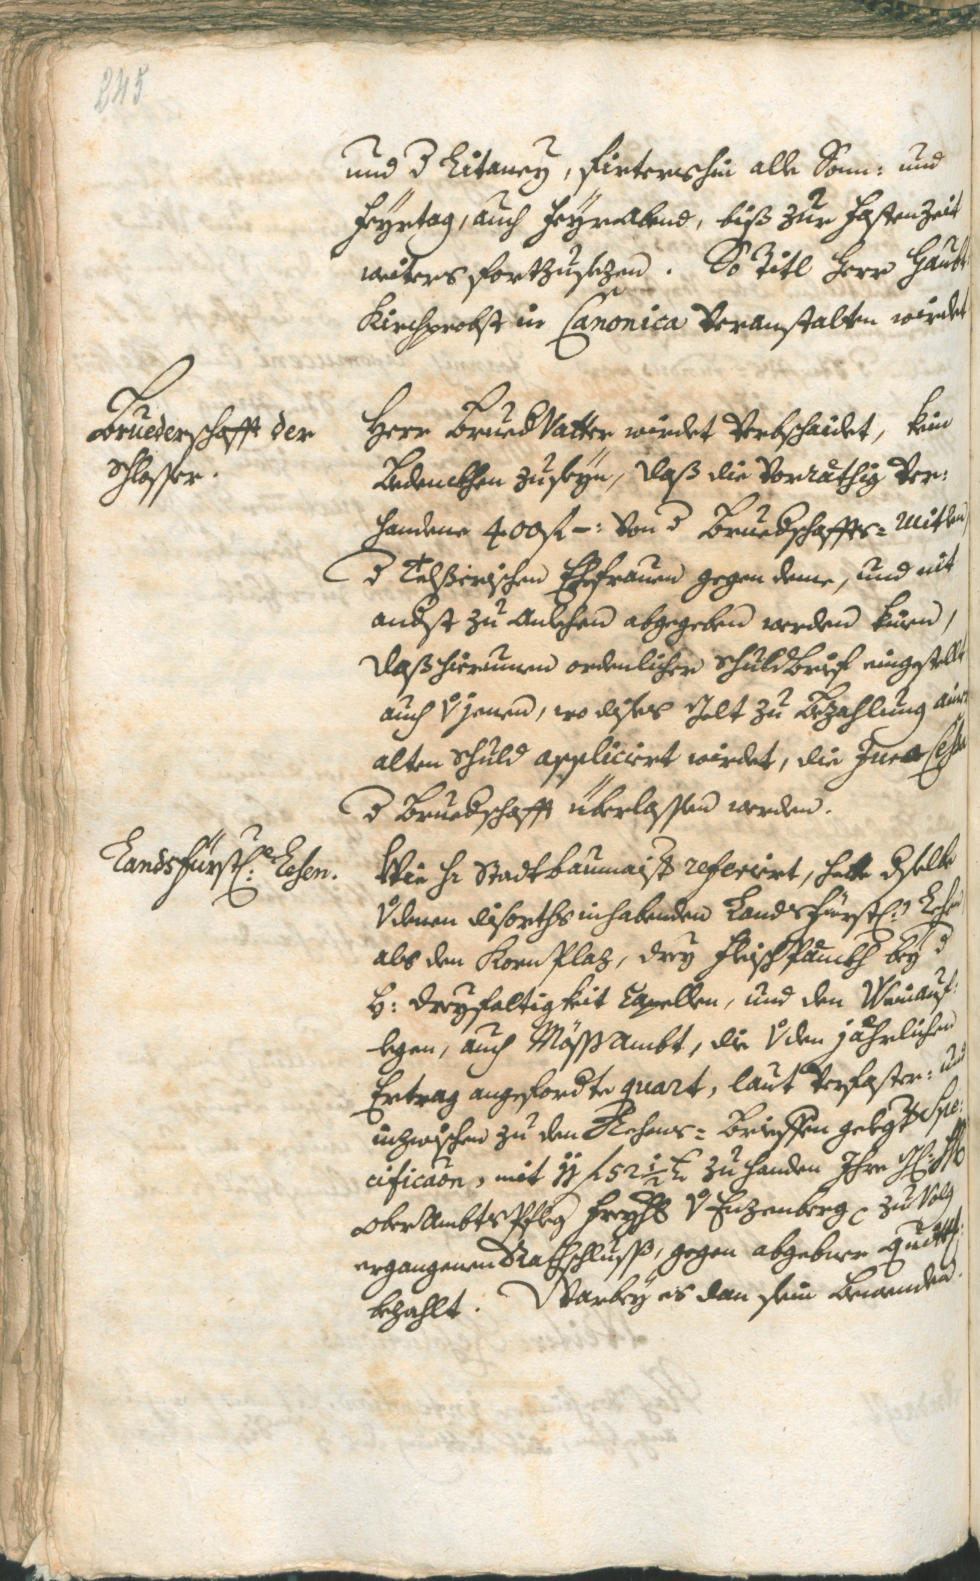 245
und d Litaney, firtershin alle Sonn: und
Feyrtag, auch Feyrabend, biß zur Fastenzeit
weiters fortzusezen. So Titl Herr Haubt
Kirchprobst in Canonica veranstalten wirdet
Bruederschafft der
Schlosser.
Herr BruedVatter wirdet verbschaidet, kein
Bedenckhen zuseyn, daß die vorräthig ver:
handene 400 f –: von d Bruedschaffts= Mitlen
d Ehefrauen gegen deme, und nit
andst zu Anlehen abgegeben werden künen,
daß hierumen ordenlicher Schuldbrief eingestellt
auch v jenem, wo dises Gelt zu Bezahlung ainer
alten Schuld appliciert wirdet, die Jura
d Bruedschafft überlassen werden.
Landsfürstl: Lehen.
Wie Hr Stadtbaumaist referiert, habe dselbe
v denen diserths inhabenden Landsfürstl: Lehen
als den Korn Plaz, drey Fleisch Pänckh bey d
H: Dreyfaltigkeit Capellen, und den Weinauf:
legen, auch Mössambt, die v den jährlichen
Ertrag angefordte quart, laut verfaster: und
inzwischen zu den Lehens= Brieffen gelegt Spe:
cification, mit zu handen Ihro
OberAmbtsPfleg Freyh v Enzenberg zu Volg
ergangenen Rathschluss, gegen abgebner Quitt:
bezahlt. Warbey es dan sein Bewenden.